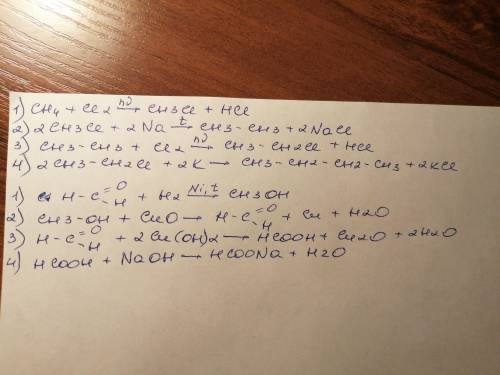 1) CH4 + Cl2 —hν→ CH3Cl + HCl
2) 2CH3Cl + 2Na —t→ CH3-CH3 + 2NaCl
3) CH3-CH3 + Cl2 —hν→ CH3-CH2Cl + HCl
4) 2CH3-CH2Cl + 2K → CH3-CH2-CH2-CH3 + 2KCl
1) H-C(=O)-H + H2 —Ni, t→ CH3OH
2) CH3-OH + CuO → H-C(=O)-H + Cu + H2O
3) H-C(=O)-H + 2Cu(OH)2 → HCOOH + Cu2O + 2H2O
4) HCOOH + NaOH → HCOONa + H2O